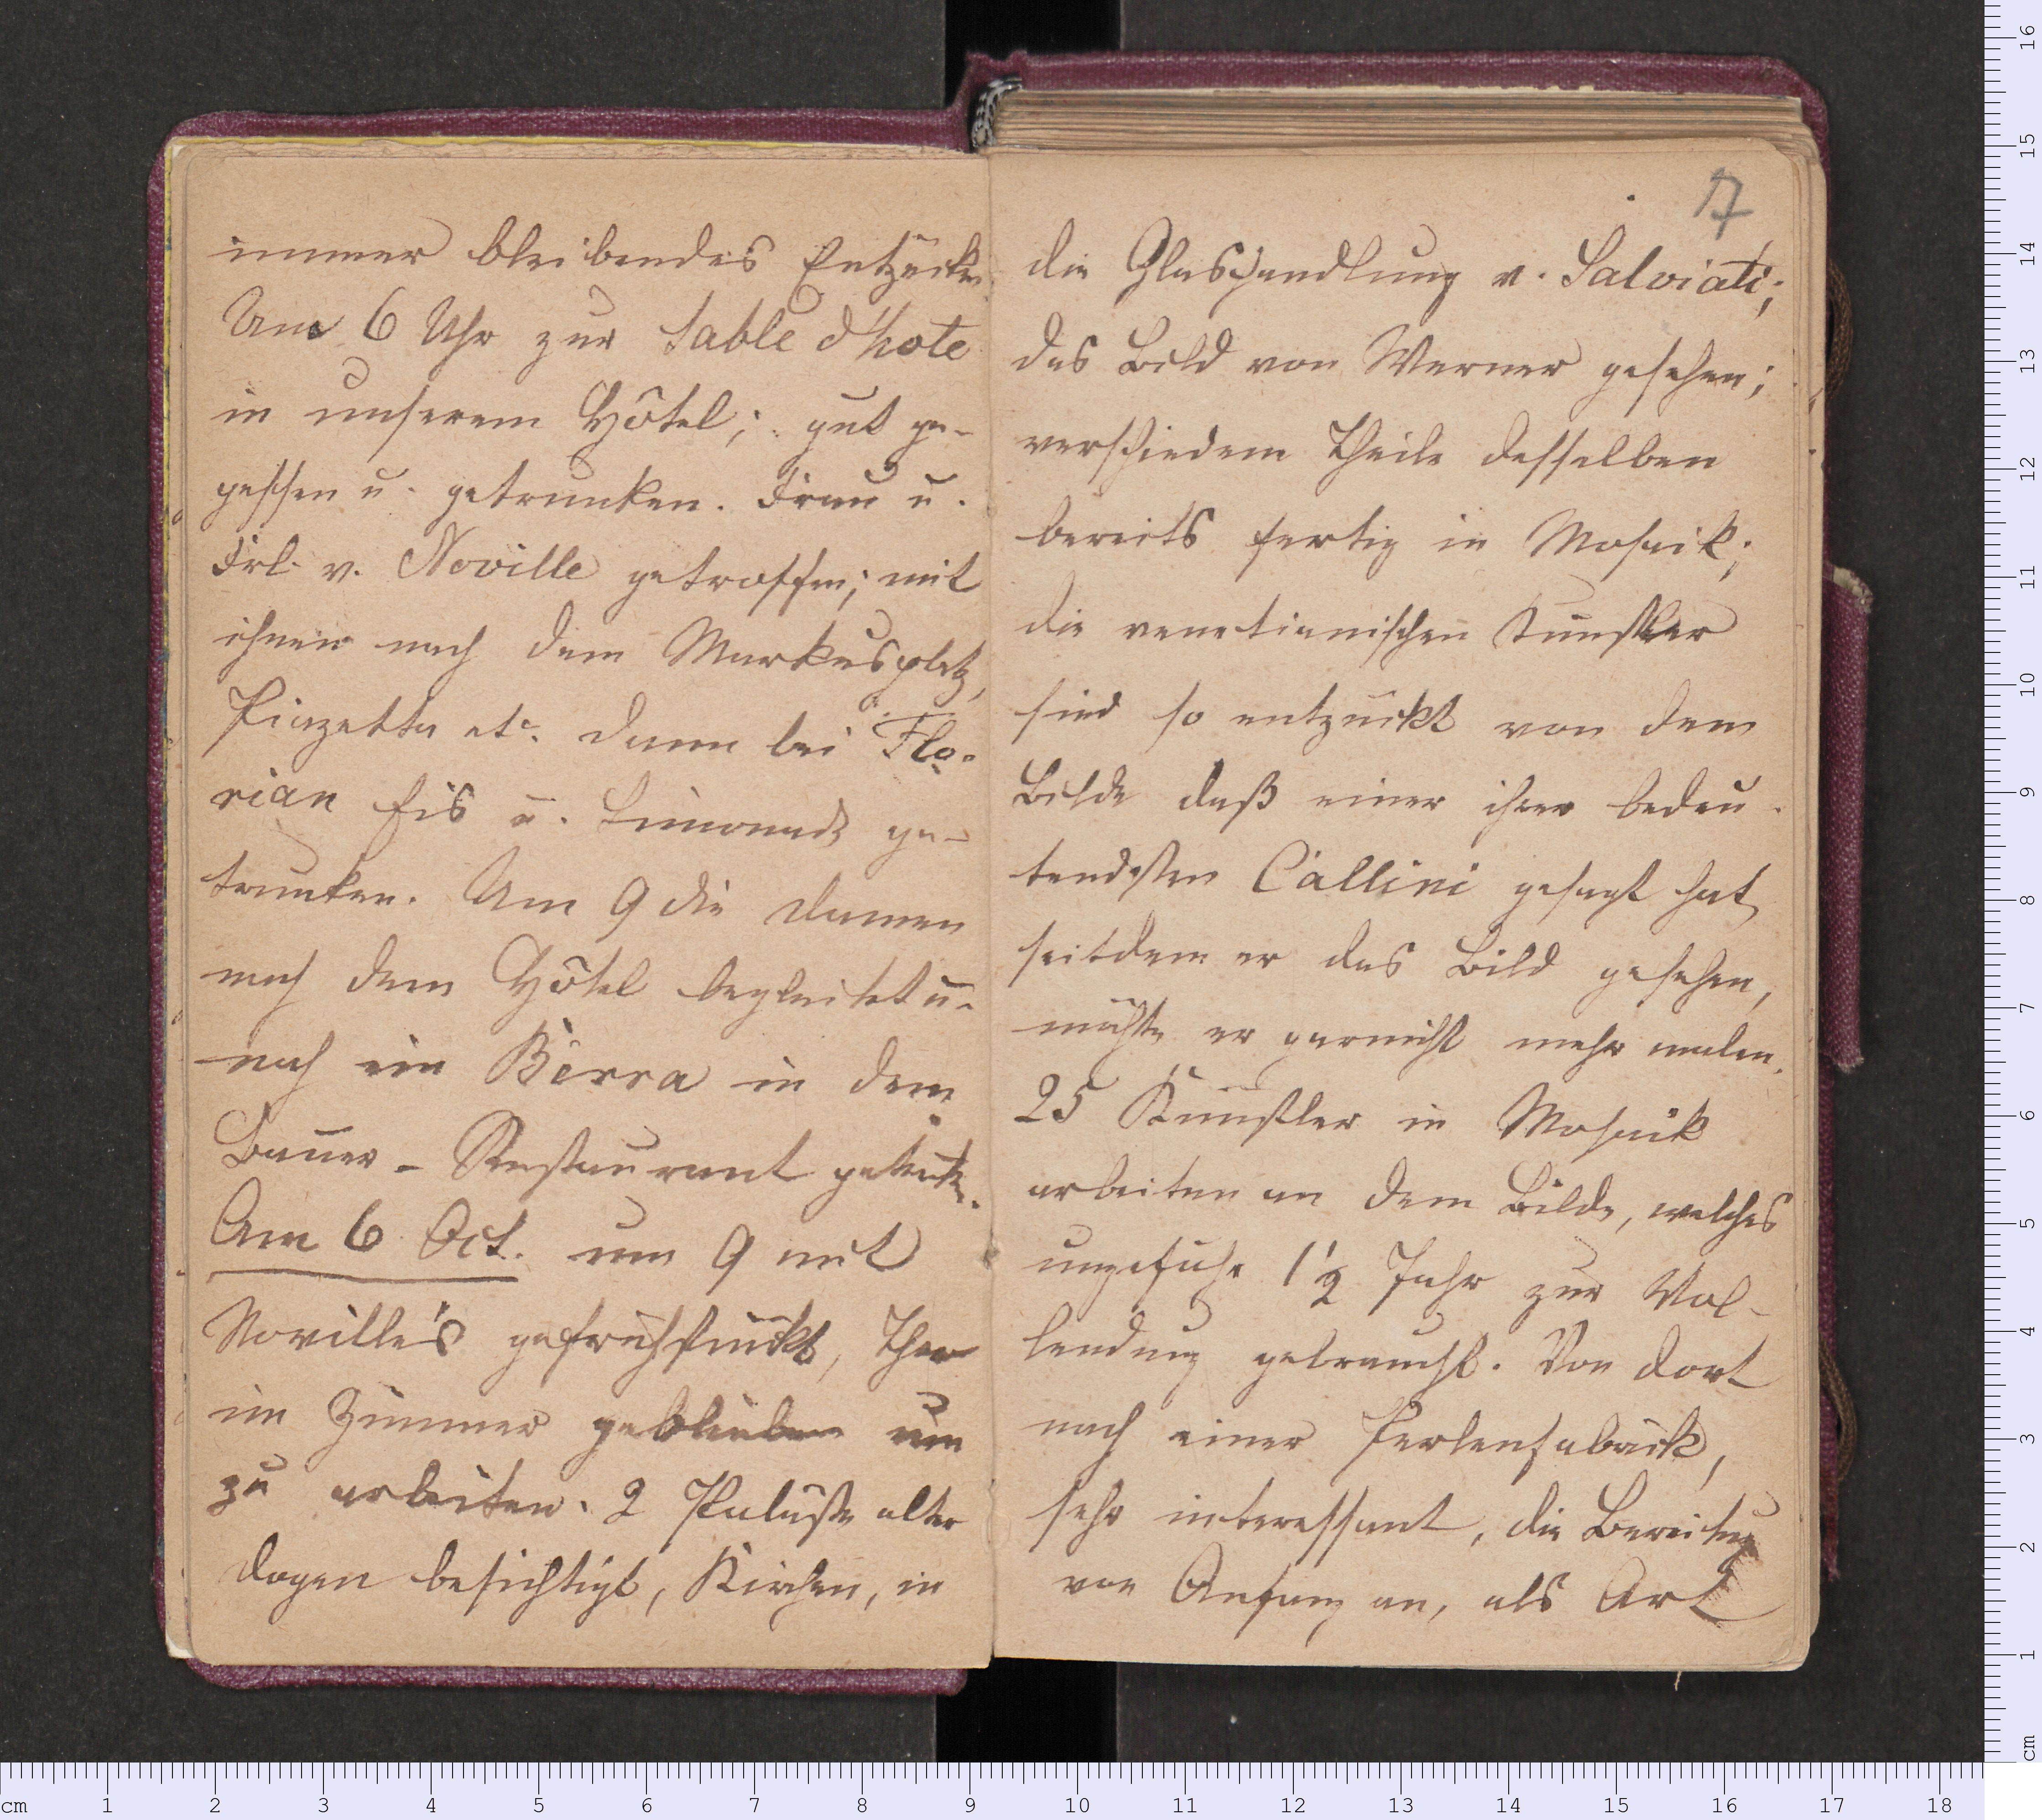 immer bleibendes Entzücken
Um 6 Uhr zur table d'hote
in unserem Hôtel; gut ge-
gessen u. getrunken. Frau u.
Frl. v. Noville getroffen; mit
ihnen nach dem Markusplatz,
Piazetta etc. dann bei Flo-
rian Eis u. Limonade ge-
trunken. Um 9 die Damen
nach dem Hôtel begleitet u.
noch ein Birra in dem
Bauer-Restaurant getrunken.
Am 6 Oct. um 9 mit
Noville's gefrühstückt,
im Zimmer geblieben um
zu arbeiten. 2 Paläste alter
Dogen besichtigt, Kirchen, in
17
die Glashandlung v. Salviati;
das Bild von Werner gesehen;
verschiedene Theile desselben
bereits fertig in Mosaik;
die venetianischen Künstler
sind so entzückt von dem
Bilde daß einer ihrer bedeu-
tendsten Callini gesagt hat
seitdem er das Bild gesehen,
möchte er garnicht mehr malen.
25 Künstler in Mosaik
arbeiten an dem Bilde, welches
ungefähr 1 1/2 Jahr zur Vol-
lendung gebraucht. Von dort
nach einer Perlenfabrik,
sehr interessant, die Bereitung
von Anfang an, als Art
cm 1 2 3 4 5 6 7 8 9 10 11 12 13 14 15 16 17 18
cm 1 2 3 4 5 6 7 8 9 10 11 12 13 14 15 16